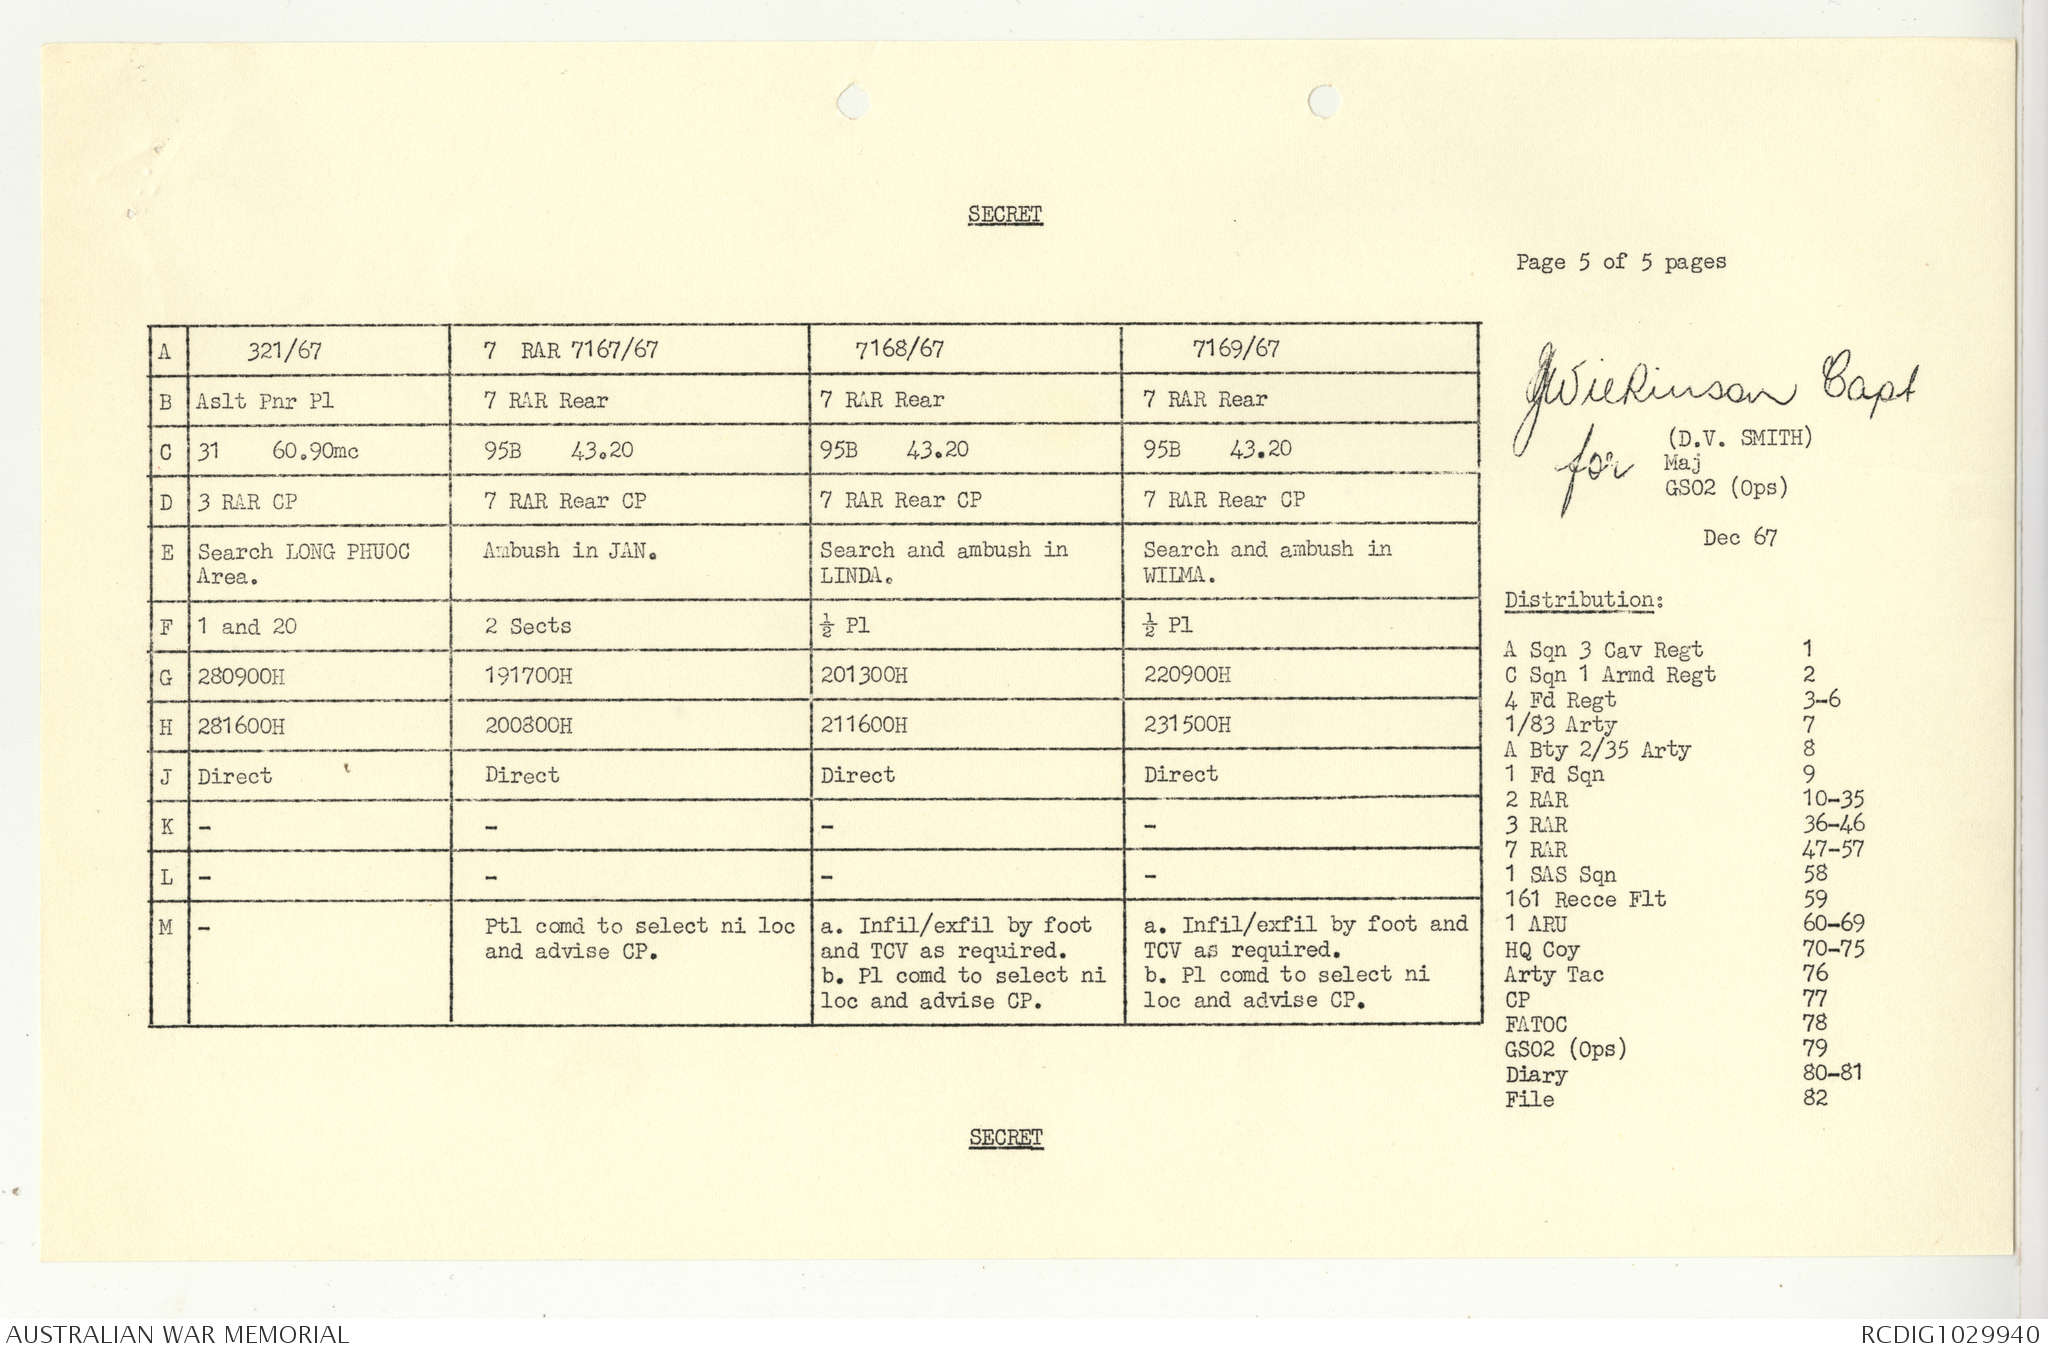 SECRET
Page 5 of 5 pages
A 321/67 7 RAR 7167/67 7168/67 7169/67
B Aslt Pnr Pl 7 RAR Rear 7 RAR Rear 7 RAR Rear
C 31 60.90mc 95B 43.20 95B 43.20 95B 43.20
D 3 RAR CP 7 RAR Rear CP 7 RAR Rear CP 7 RAR Rear CP
E Search LONG PHUOC Ambush in JAN. Search and ambush in Search and ambush in
Area. LINDA. WILMA.
F 1 and 20 2 Sects ½ Pl ½ Pl
G 280900H 191700H 201300H 220900H
H 281600H 200800H 211600H 231500H
J Direct Direct Direct Direct
K - - - -
L - - - -
M - Ptl comd to select ni loc a. Infil/exfil by foot a. Infil/exfil by foot and
and advise CP. and TCV as required. TCV as required.
b. Pl comd to select ni b. Pl comd to select ni
loc and advise CP. loc and advise CP.
JWilkinson Capt
for (D.V. SMITH)
Maj
GSO2 (Ops)
Dec 67
Distribution:
A Sqn 3 Cav Regt 1
C Sqn 1 Armd Regt 2
4 Fd Regt 3-6
1/83 Arty 7
A Bty 2/35 Arty 8
1 Fd Sqn 9
2 RAR 10-35
3 RAR 36-46
7 RAR 47-57
1 SAS Sqn 58
161 Recce Flt 59
1 ARU 60-69
HQ Coy 70-75
Arty Tac 76
CP 77
FATOC 78
GSO2 (Ops) 79
Diary 80-81
File 82
SECRET
AUSTRALIAN WAR MEMORIAL RCDIG1029940